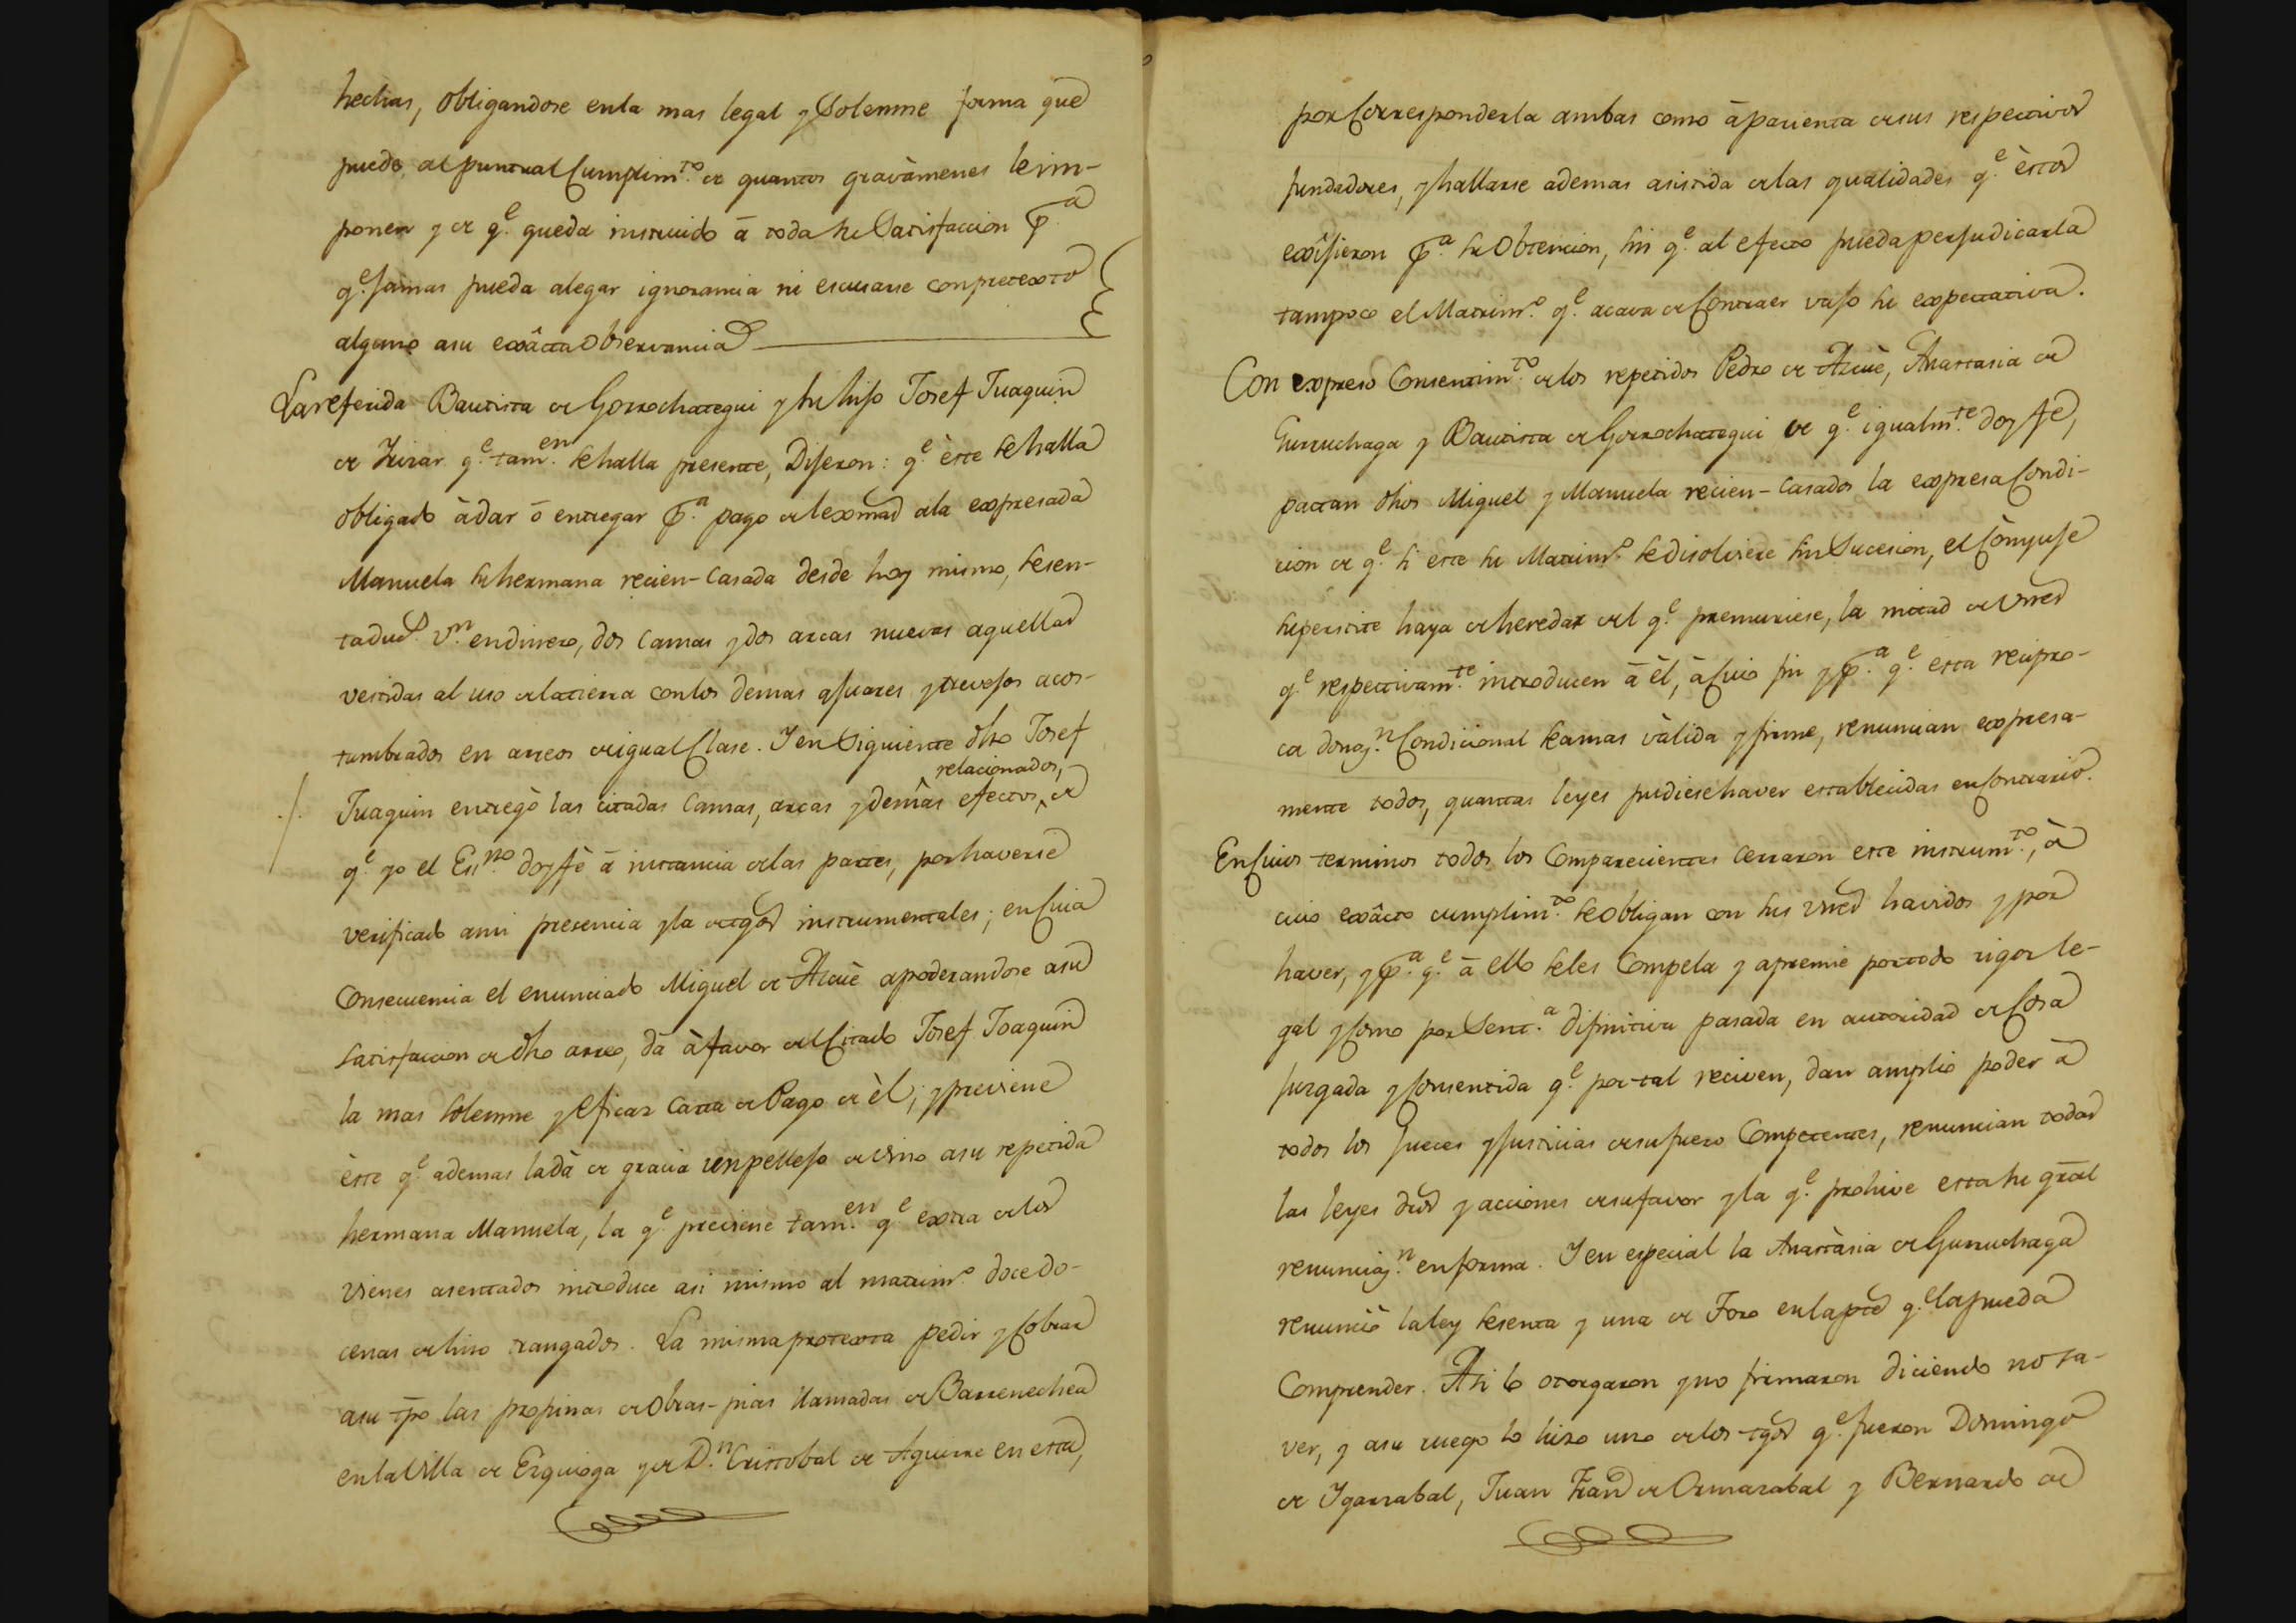 hechas, obligandose enla mas legal y Solemne forma que
puede al puntual Cumplim.to de quantos gravàmenes le im-
ponen y de q.e queda instruido â toda su Satisfaccion p.a
q.e jamas pueda alegar ignorancia ni escusarse con pretexto
alguno asu exâcta observancia
La referida Bautista de Gorrochategui y su hijo Josef Juaquin
de Irizar q.e tam.en se halla presente, Dijeron: q.e èste se halla
obligado àdar ô entregar p.a pago de lexmãd ala expresada
Manuela su hermana recien-Casada desde hoy mismo, sesen-
ta duc.s v.n en dinero, dos Camas y dos arcas nuevas aquellas
vestidas al uso dela tierra con los demas ajuares y trevejos acos-
tumbrados en arreos de igual Clase. Y en Siguiente dho Josef
Juaquin entregò las citadas Camas, arcas y demâs efectos ^relacionados,^ de
q.e yo el Es.no doy fè â instancia delas partes, por haverse
verificado a mi presencia y la de tgos instrumentales; en Cuia
Consecuencia el enunciado Miguel de Azcuè apoderandose asu
satisfaccion de dho arreo, dà à favor del Citado Josef Joaquin
la mas solemne y eficaz Carta de Pago de èl; y previene
èste q.e ademas la dà de gracia un pellejo de vino asu repetida
hermana Manuela, la q.e previene tam.en q.e extra de los
vienes asentados introduce asi mismo al matrim.o doce do-
cenas de lino trangados. La misma protexta pedir y Cobrar
asu tpo las propinas de Obras-pias llamadas de Barrenechea
en la Villa de Ezquioga y de D.n Cristobal de Aguirre en esta,
por Corresponderla ambas como â parienta de sus respectivos
fundadores, y hallarse ademas asistida delas qualidades q.e èstos
exîjieron p.a su Obtencion, sin q.e al efecto pueda perjudicarla
tampoco el Matrim.o q.e acava de Contraer vajo su expectativa.
Con expreso Consentim.to de los repetidos Pedro de Azcuè, Anastasia de
Gurruchaga y Bautista de Gorrochategui de q.e igualm.te doy fe,
pactan dhos Miguel y Manuela recien-Casados la expresa Condi-
cion de q.e si este su Matrim.o se disolviere sin Sucesion, el Cònyuje
superstite haya de heredar del q.e premuriese, la mitad de vnes
q.e respectivam.te introducen â èl, â Cuio fin y p.a q.e esta recipro-
ca donaz.n Condicional seamas vàlida y firme, renuncian expresa-
mente todos, quantas leyes pudiese haver establecidas en Contrario.
En Cuios terminos todos los Comparecientes Cerraron este instrum.to, â
cuio exâcto cumplim.to se Obligan con sus vnes havidos y por
haver, y p.a q.e â ello seles Compela y apremie por todo rigor le-
gal y Como por Sent.a difinitiva pasada en autoridad de Cosa
juzgada y Consentida q.e por tal reciven, dan amplio poder â
todos los jueces y justicias de su fuero Competentes, renuncian todas
las leyes dros y acciones de su favor y la q.e prohive esta su gral
renunciaz.n en forma. Y en especial la Anastàsia de Gurruchaga
renunciò la ley sesenta y una de Toro en la pte q.e la pueda
Comprender. Asi lo otorgaron y no firmaron diciendo no sa-
ver, y asu ruego lo hizo uno de los tgos q.e fueron Domingo
de Ygarzabal, Juan Fran.co de Ormazabal y Bernardo de